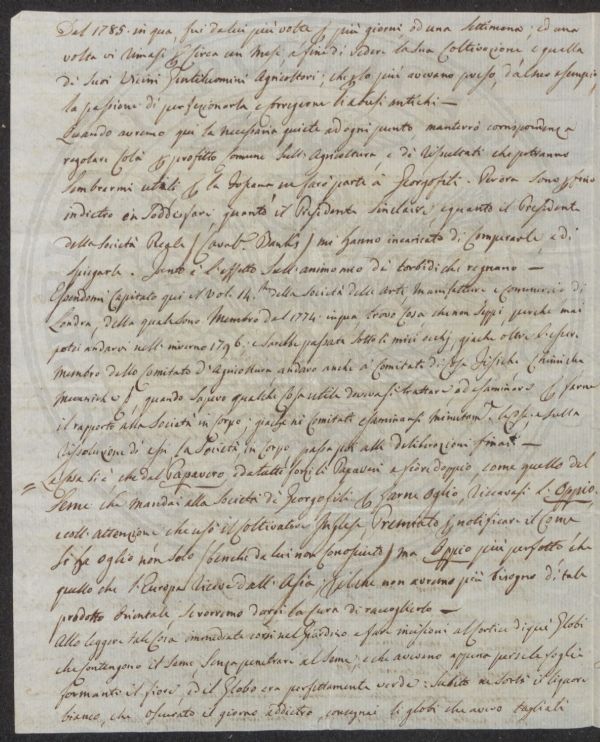 Dal 1785. in qua, fui da lui più volte p più giorni, ed una Settimana, ed una
volta vi rimasi p circa un Mese, a fine di vedere la Sua Coltivazione e quella
di Suoi Vicini Gentiluomini Agricoltori; che p lo più avevano preso, d'altrui esempio,
la passione di perfezionarla, e correggerne li abusi antichi —
Quando avremo qui la necessaria quiete ad ogni punto manterrò corrispondenza
regolare colà p profitto Comune Sull'Agricoltura, e di risultati che potranno
Sembrarmi utili p la Toscana ne farò parte a Georgofili. Per ora sono
indietro in Soddisfare quanto il Presidente Sinclair, e quanto il Presidente
della Società Reale (Cavalr. Banks) mi hanno incaricato di Comperarle, e di
Spiegarle. Tanto è l'effetto Sull'animo mio de torbidi che regnano —
Essendomi Capitato qui il Vol: 14. della Società delle Arti Manufatture e Commercio di
Londra, della quale Sono Membro dal 1774. in qua, trovo Cosa che non Seppi, perchè mai
potei andarvi nell'inverno 1796. e sarebbe passata Sotto li miei occhj, giacchè oltre l'esser
Membro dello Comitato d'Agricoltura andavo anche a Comitati di Cose Fisiche Chimiche
Mecaniche &. quando Sapevo qualche Cosa utile dovevasi trattare ed esaminare p farne
il rapporto alla Società in Corpo; giacchè ni Comitati esaminansi minutam. le Cose e Sulla
risoluzione di essi la Società in Corpo passa poi alle deliberazioni finali —
= La Cosa Si è che dal Papavero, e da tutti forse li Papaveri a fiore doppio, come quello del
Seme che mandai alla Società di Georgofili p farne Oglio, ricavasi l'Oppio.
e coll'attenzione che usò il Coltivatore Inglese Premiato p notificare il Come
Si fa oglio non Solo (benchè da lui non Conosciuto) ma Oppio più perfetto che
quello che l'Europa riceve dall'Asia; Sicchè non avremo più bisogno di tale
prodotto Orientale, Se vorremo darsi la Cura di raccoglierlo —
Allo leggere tale Cosa immediate corsi nel Giardino a fare incisioni al Cortice di quei Globi
che contengono il Seme, Senza penetrare al Seme; e che avevano appena perse le foglie
formanti il fiore, ed il Globo era perfettamente verde: Subito ne Sortì il liquore
bianco, che oscurato il giorno addietro, consegnai li globi che avevo tagliati